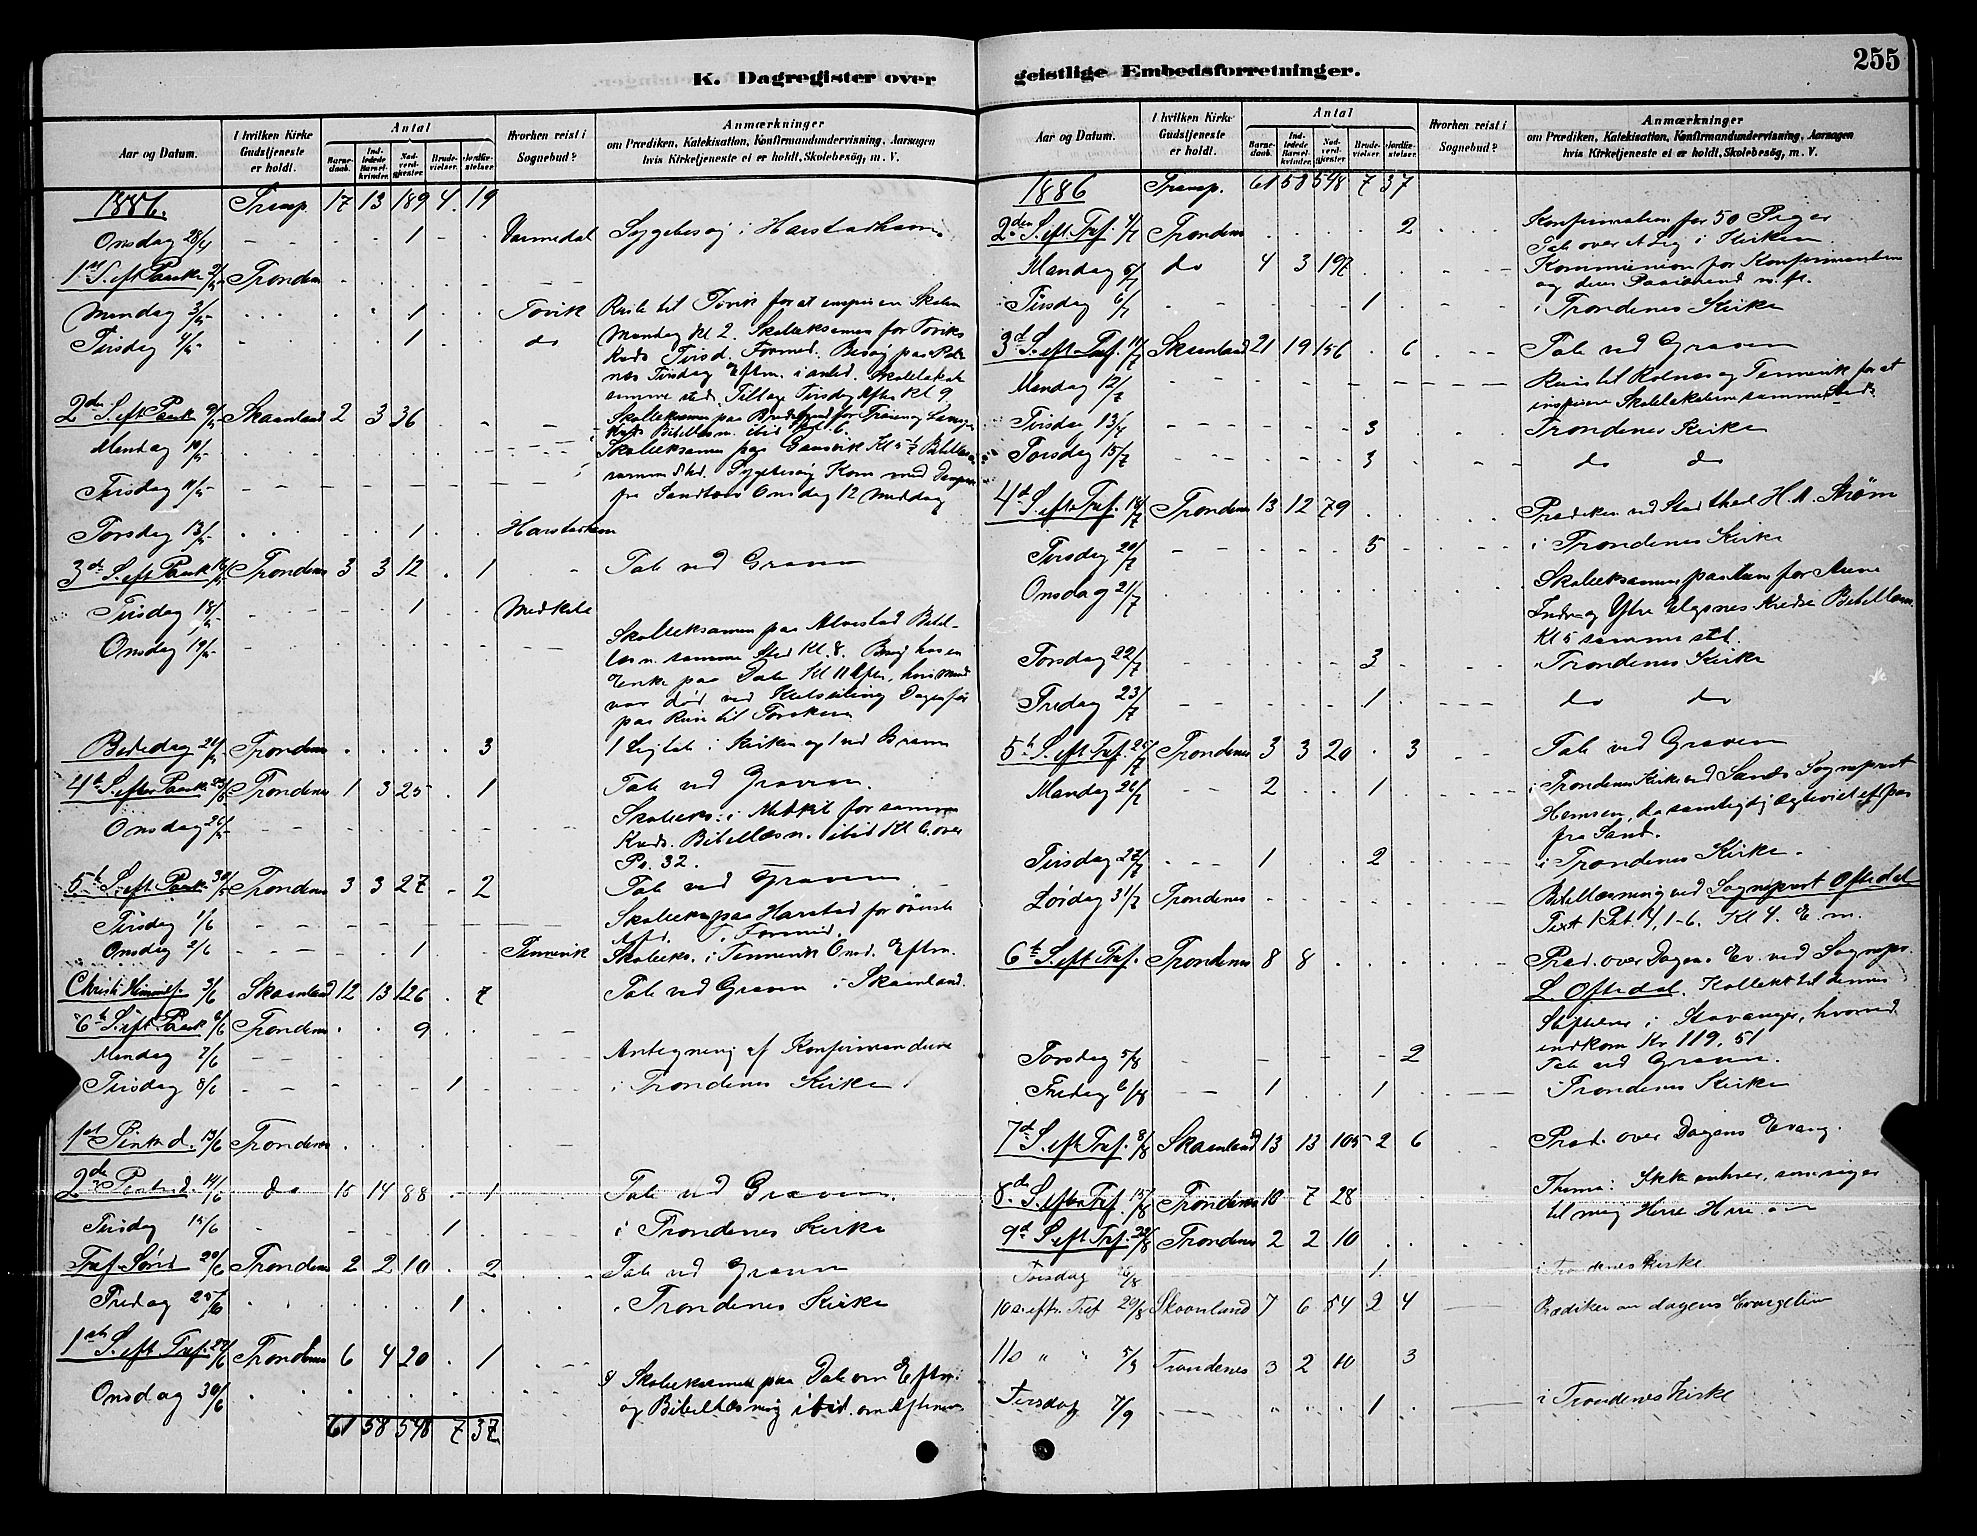 K. Dagregister over
Aar og Datum.
I hvilken Kirke Gudstjeneste er holdt.
Antal
Barne-daab.
Ind-ledede Barsel-kvinder.
Nad-verd-gjester
Brude-vielser.
Jordfæ-stelser.
Hvorhen reist i Sognebud?
Anmærkninger
om Prædiken, Katekisation, Konfirmandundervisning, Aarsagen
hvis Kirketjeneste ei er holdt, Skolebesøg, m. V.
1886. Transp. 17 13 189 4. 19
Onsdag 28/4 1 Varmedal Sygebesøg i Harstadhavn
1ste S. eft Paaske 2/5 Trondenes
Mandag 3/5 1 Tovik Reiste til Tovik for at inspisere Skolen
Tirsdag 4/5 1 do Mandag Kl 2. Skoleeksamen for Toviks
Kreds Tirsd. Formd. Besøg paa Rol-
nes Tirsdag Eftm. i anled. Skolelokale
samme sted. Tilbage Tirsdag Aften Kl 9
2den S. eft Paask 9/5 Skaanland 2 3 36
Kreds Bibellæsn. ibid Kl 6.
Mandag 10/5 Skoleeksamen paa Gausvik Kl 5 1/2 Bibellæsn
Tirsdag 11/5 samme Sted. Sygebesøg Kom med Dampen
fra Sandtorv Onsdag 12 Middag
Torsdag 13/5 1 Harstadhavn
3de S. eft Paask 16/5 Trondenes 3 3 12 . 1 Tale ved Graven
Tirsdag 18/5 1 Medkile
Onsdag 19/5 Skoleeksamen paa Alvestad Bibel-
læsn. samme Sted Kl. 8. Besøg hos en
Enke paa Dale Kl 11 Aften, hvis Mand
var død ved Kulseiling Dagen før
paa Reise til Torsken
Bededag 21/5 Trondenes 3 1 Ligtale i Kirken og 1 ved Graven
4de S. efter Paask 23/5 Trondenes 1 3 25 . 1 Tale ved Graven.
Onsdag 26/5 Skoleeks: i Medkil for samme
Kreds. Bibellæsn. ibid Kl 6. over
Ps. 32.
5te S. eft Paask. 30/5 Trondenes 3 3 27 - 2 Tale ved Graven
Tirsdag 1/6 Skoleeks paa Harstad for øverste
Afd. T. Formid.
Onsdag 2/6 1 Tennevik Skoleeks. i Tennevik Onsd. Eftm.
Christi Himmelf. 3/6 Skaanland 12 13 126 . 7 Tale ved Graven i Skaanland.
6te S. eft Paask 6/6 Trondenes . . 9
Mandag 7/6 Antegning af Konfirmanderne
Tirsdag 8/6 1 i Trondenes Kirke
1ste Pintsd. 13/6 Trondenes
2den Pintsd. 14/6 do 15 14 88 . 1 Tale ved Graven.
Tirsdag 15/6 1 i Trondenes Kirke
Tref. Sønd 20/6 Trondenes 2 2 10 . 2 Tale ved Graven
Fredag 25/6 1 i Trondenes Kirke
1ste S. eft Tref. 27/6 Trondenes 6 4 20 . 1
Onsdag 30/6 Skoleeksamen paa Dale om Eftm:
og Bibellæsning ibid. om Aftenen
61 58 548 7 37
geistlige Embedsforretninger.
255
Aar og Datum.
I hvilken Kirke Gudstjeneste er holdt.
Antal
Barne-daab.
Ind-ledede Barsel-kvinder.
Nad-verd-gjester
Brude-vielser.
Jordfæ-stelser.
Hvorhen reist i Sognebud?
Anmærkninger
om Prædiken, Katekisation, Konfirmandundervisning, Aarsagen
hvis Kirketjeneste ei er holdt, Skolebesøg, m. V.
1886 Transp. 61 58 548 7 37
2den S. eft. Tref. 4/7 Trondenes 2 Konfirmation for 50 Piger
Tale over et Lig i Kirken.
Mandag 5/7 do 4 3 197 Kommunion for Konfirmanterne
og deres Paarørend m. fl.
Tirsdag 6/7 1 i Trondenes Kirke
3de S. eft. Tref. 11/7 Skaanland 21 19 156 . 6 Tale ved Graven
Mandag 12/7 Reiste til Rolnes og Tennevik for at
inspisere Skolelokalerne sammesteds
Tirsdag 13/7 3 Trondenes Kirke
Torsdag 15/7 3 do do
4de S. eft. Tref. 18/7 Trondenes 13 12 79 Prædiken ved Stud theol H. A. Strøm
Tirsdag 20/7 5 i Trondenes Kirke
Onsdag 21/7 Skoleeksamen paa Aune for Aune
Indre og Ytre Elgsnes Kredse Bibellæsn.
Kl 5 samme sted.
Torsdag 22/7 3 i Trondenes Kirke
Fredag 23/7 1 do do
5te S. eft Tref. 25/7 Trondenes 3 3 20 . 3 Tale ved Graven
Mandag 26/7 2 1 i Trondenes Kirke ved Sands Sogneprest
Hemsen, da samtidig ægteviet et par
fra Sand.
Tirsdag 27/7 1 2 i Trondenes Kirke.
Lørdag 31/7 Trondenes Bibellæsning ved Sogneprest Oftedal
Text 1 Pet. 4, 1-6. Kl 4. E. m.
6te S. eft Tref. Trondenes 8 8 Præd. over Dagens Ev. ved Sognepr.
L. Oftedal. Kollekt til dennes
Stiftelser i Stavanger, hvorved
indkom Kr 119, 51
Torsdag 5/8 2 Tale ved Graven.
Fredag 6/8 1 1 i Trondenes Kirke
7de S. eft Tref. 8/8 Skaanland 13 13 105 2 6 Præd. over Dagens Evang.
8de S. efter Tref. 15/8 Trondenes 10 7 28 Thema: Ikke enhver, som siger
til mig Herre Herre
9de S. eft Tref. 22/8 Trondenes 2 2 10
Torsdag 26/8 1 i Trondenes Kirke
10 s. eftr. Tref 29/8 Skaanland 7 6 54 2 4 Prædiken om dagens Evangelium
11 s " " 5/9 Trondenes 3 2 10 3
Tirsdag 7/9 1 i Trondenes Kirke